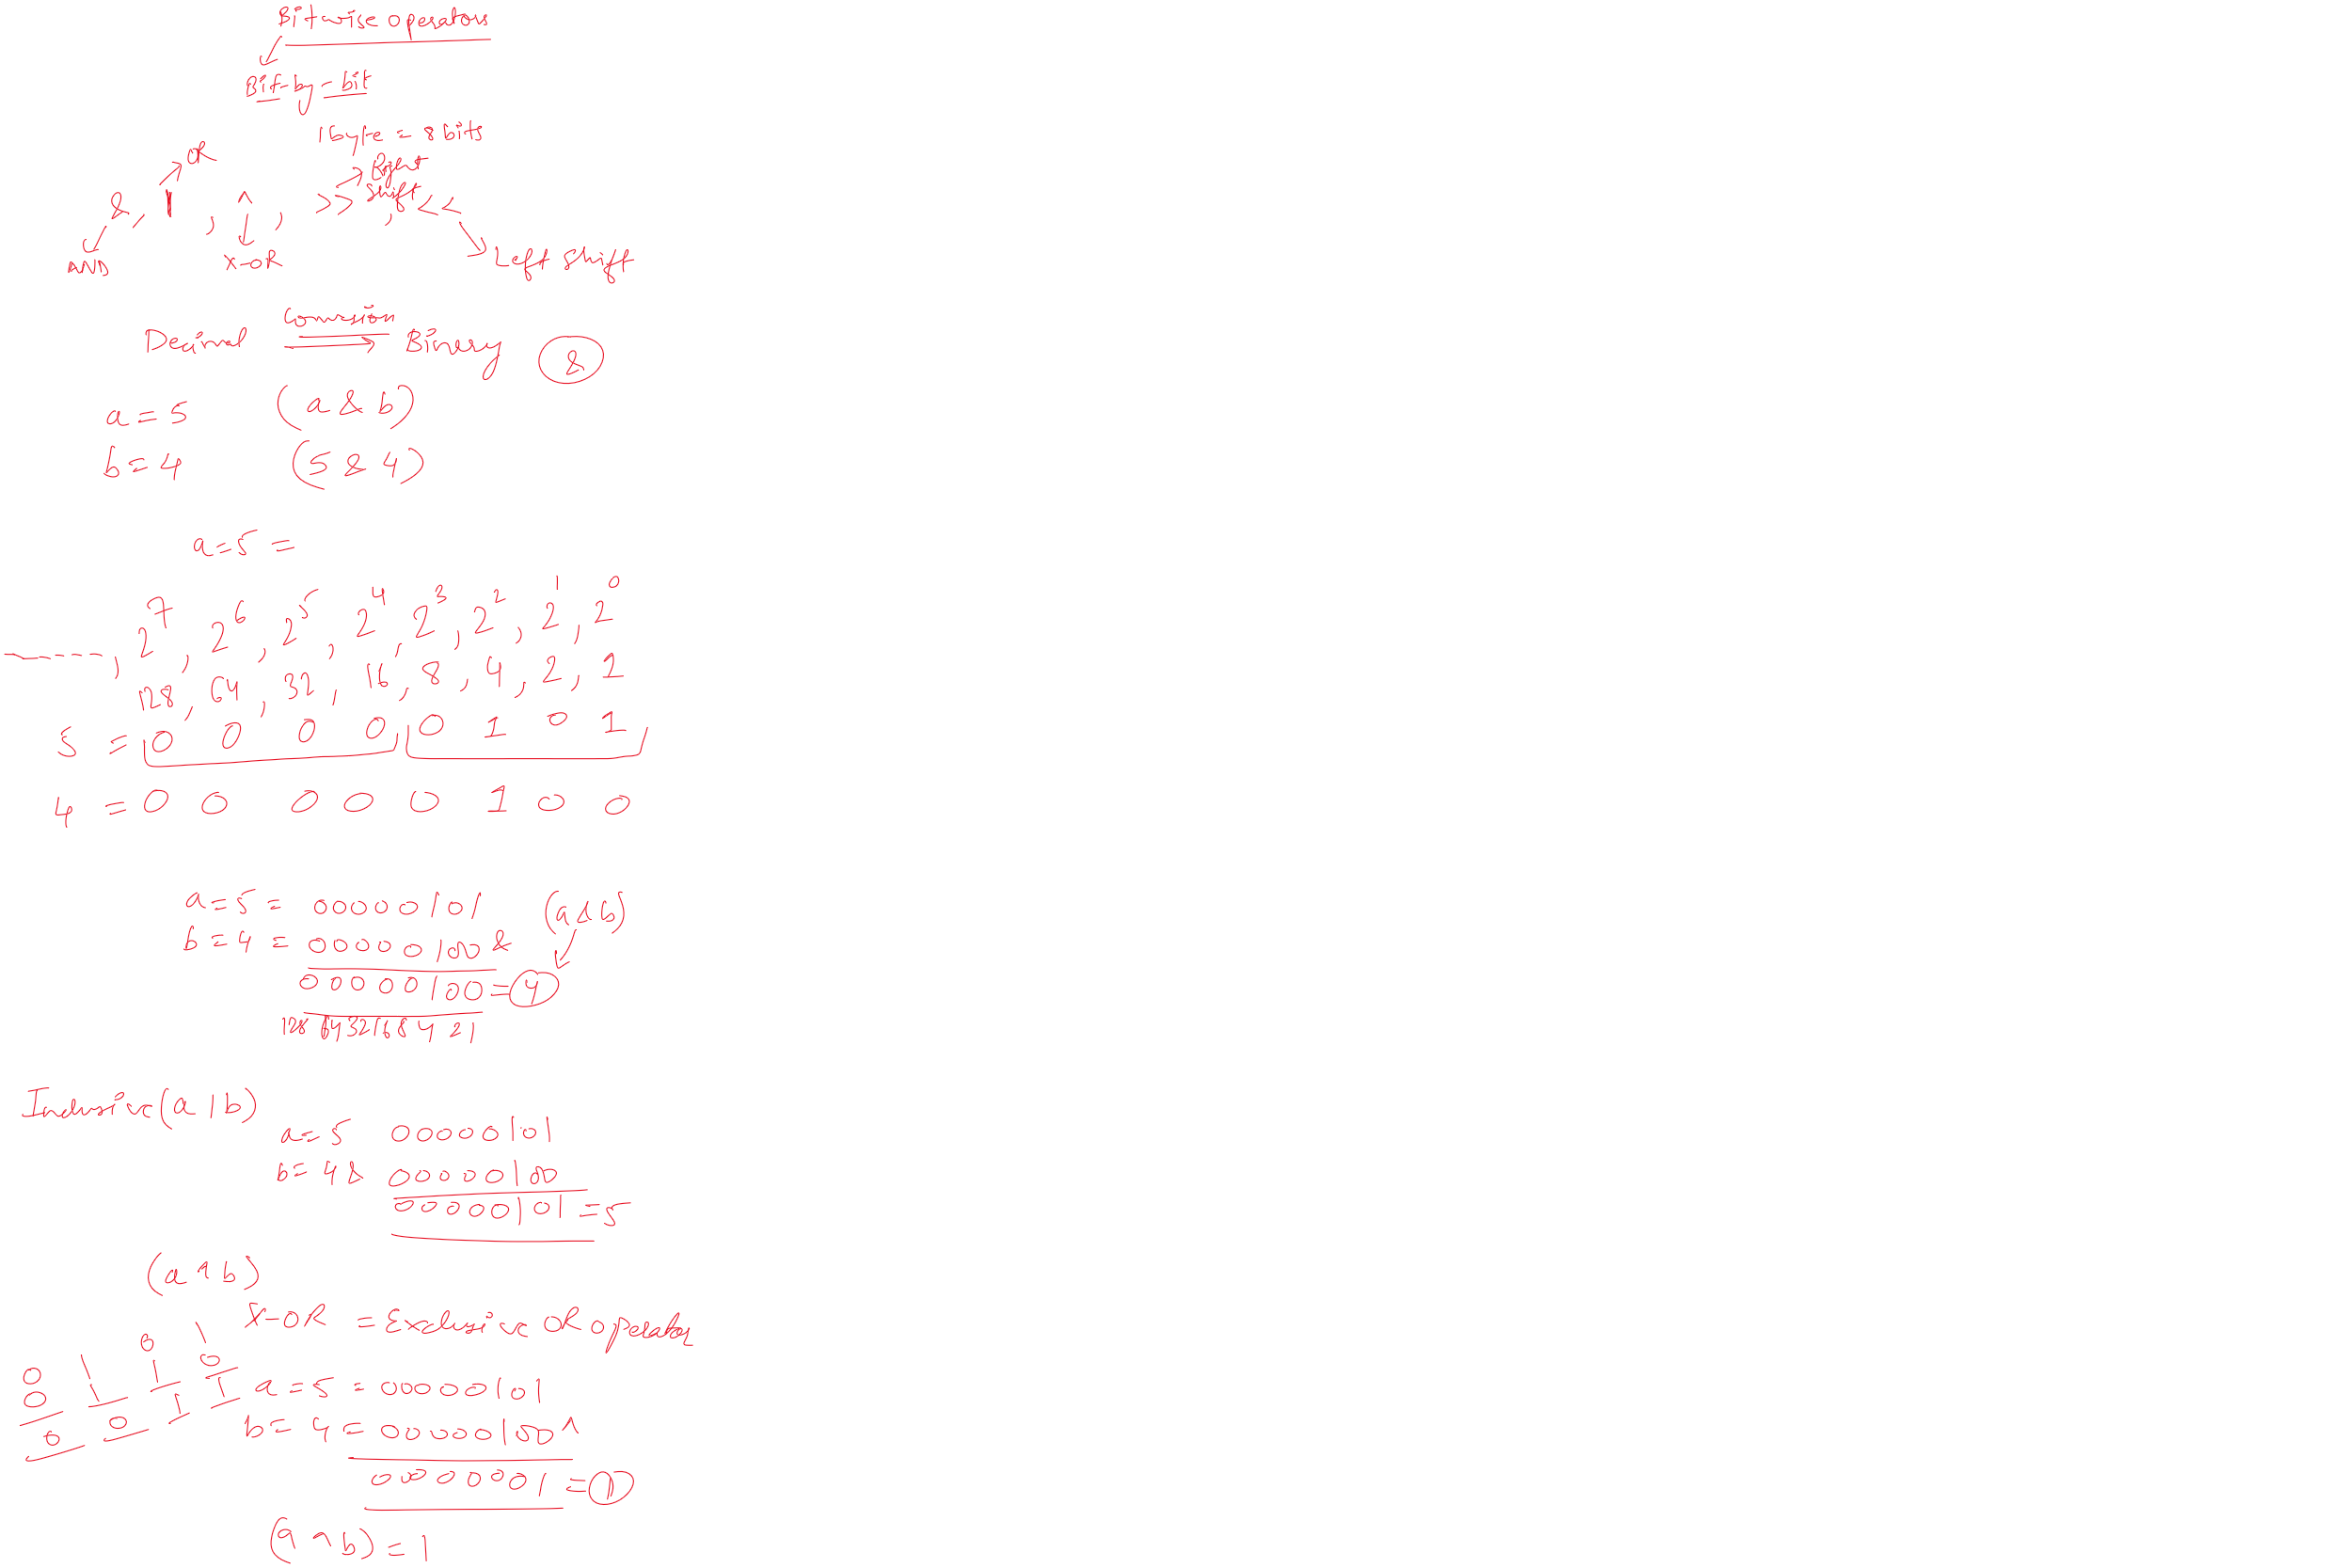 Bitwise operators
Bit-by-bit
1 byte = 8 bits
OR
Right
&, |, ^, >> shift, <<
AND X-OR Left shift
Conversion
Decimal Binary &
a = 5 (a & b)
b = 4 (5 & 4)
a = 5 =
-----, 2^7, 2^6, 2^5, 2^4, 2^3, 2^2, 2^1, 2^0
128, 64, 32, 16, 8, 4, 2, 1
5 = 0 0 0 0 0 1 0 1
4 = 0 0 0 0 0 1 0 0
a = 5 = 00000101 (a & b)
b = 4 = 00000100 &
00000100 = 4
128 64 32 16 8 4 2 1
Inclusive (a | b)
a = 5 00000101
b = 4 & 00000100
00000101 = 5
(a ^ b)
X-OR = Exclusive OR operator
0 1 0 1
0 1 1 0
0 0 1 1
a = 5 = 00000101
b = 4 = 00000100 ^
00000001 = 1
(a ^ b) = 1